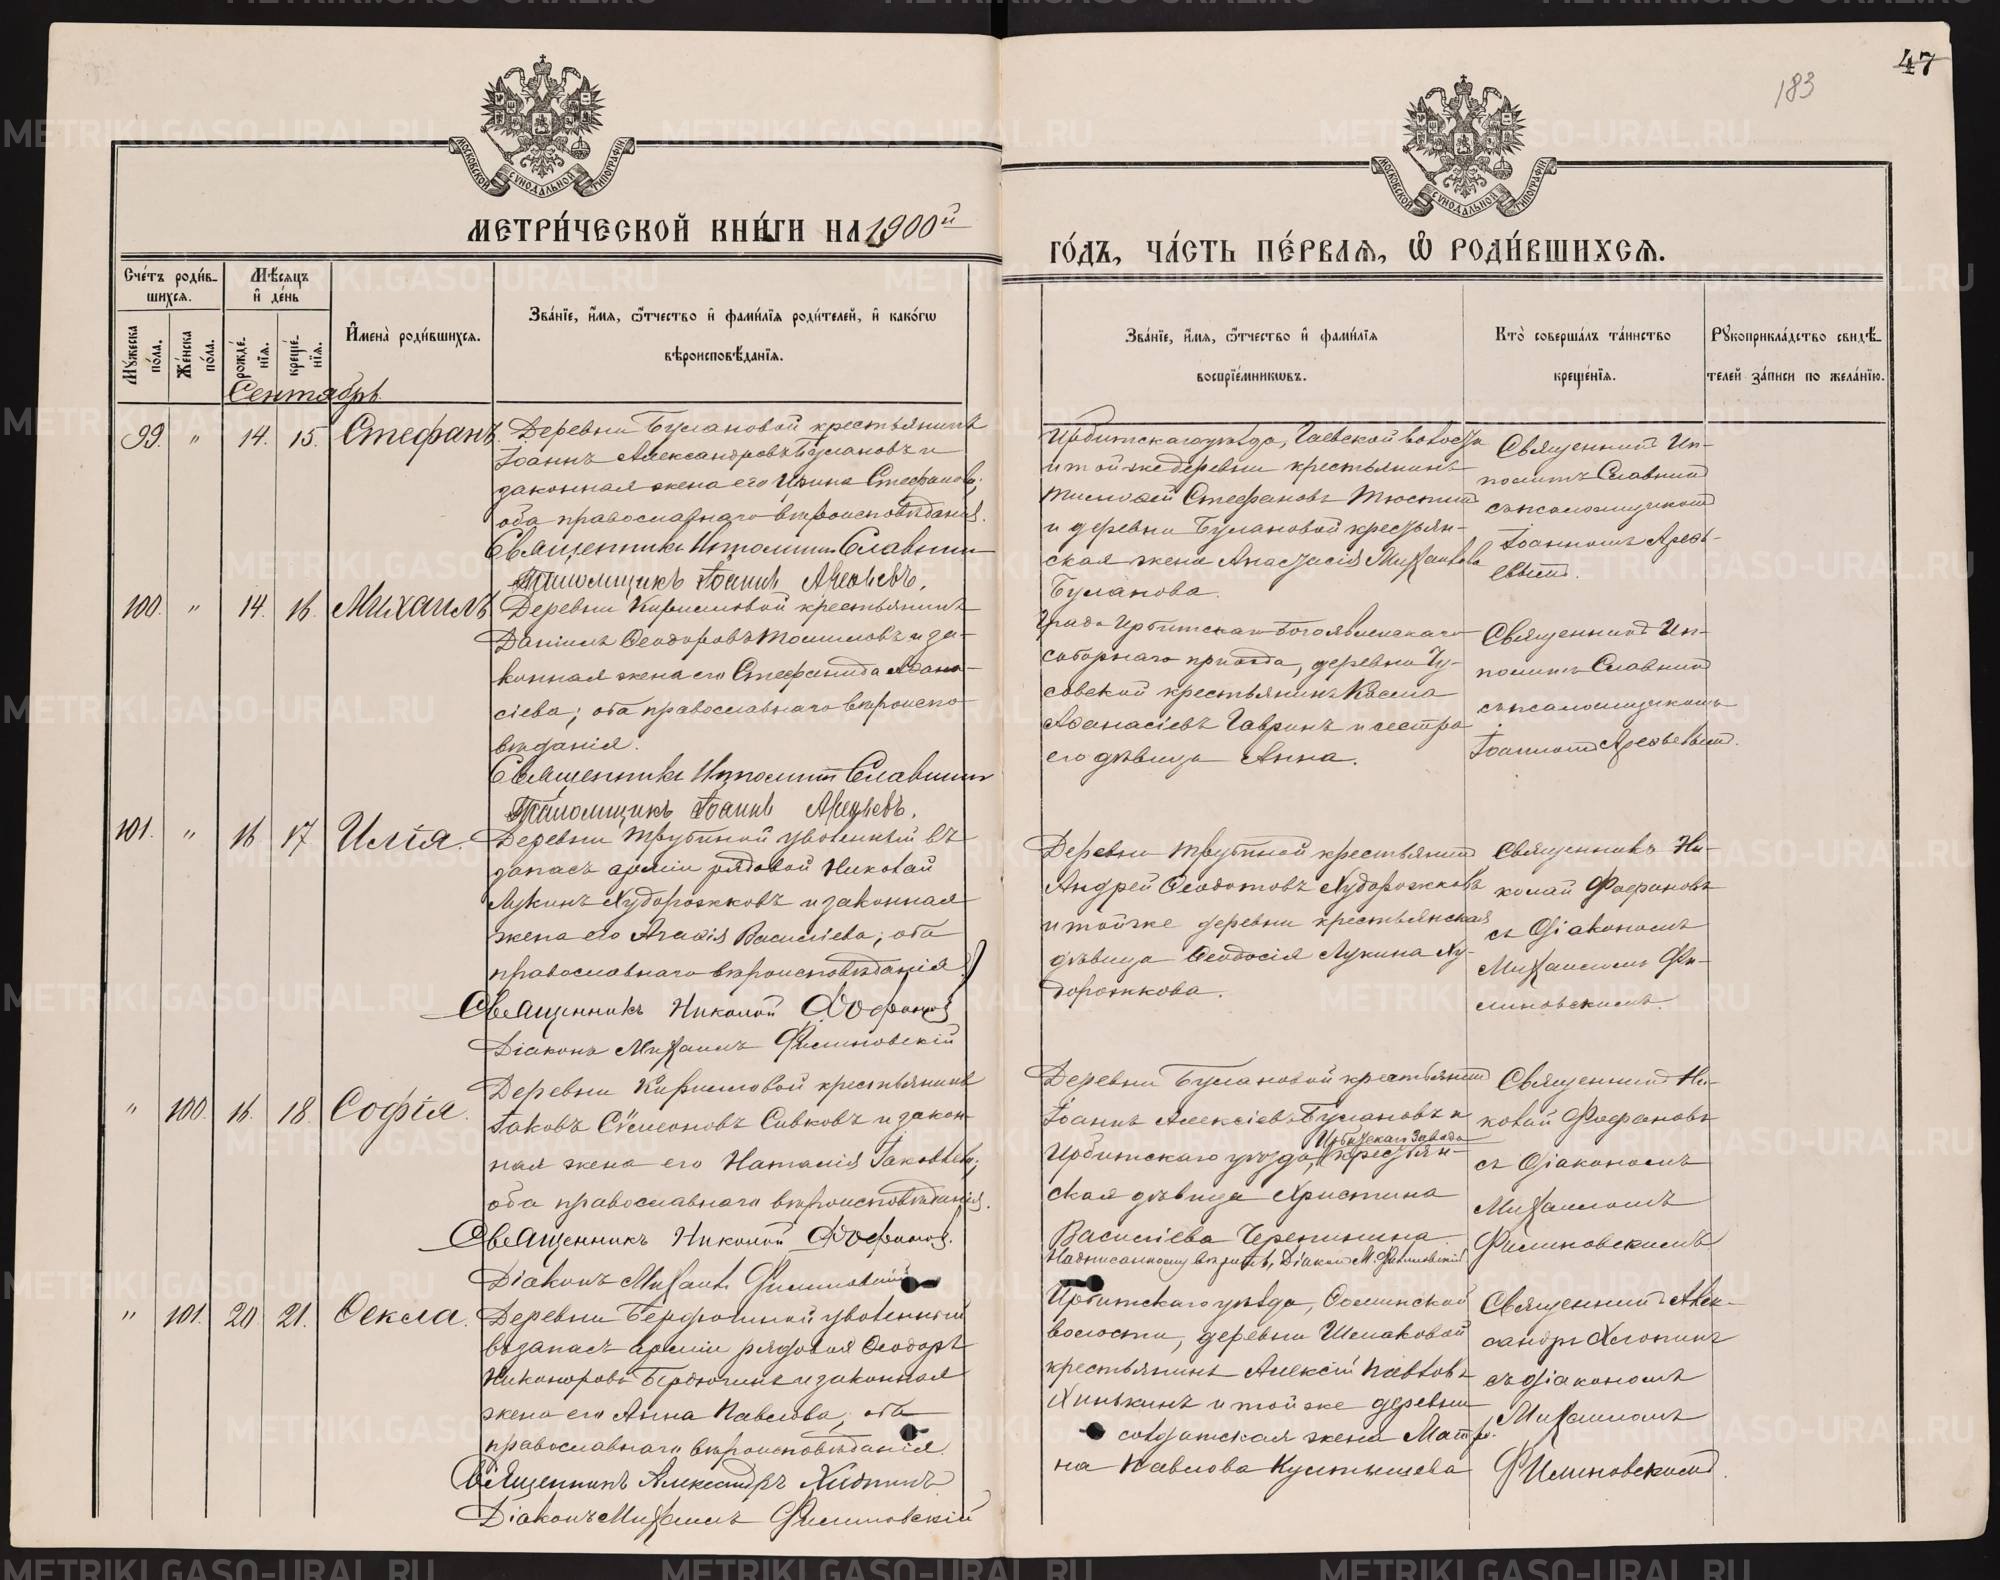 47
183
МОСКОВСКОЙ СѴНОДАЛЬНОЙ ТИПОГРАФІИ
МОСКОВСКОЙ СѴНОДАЛЬНОЙ ТИПОГРАФІИ
МЕТРИ́ЧЕСКОЙ КНИ́ГИ НА 1900й
ГО́ДЪ, ЧА́СТЬ ПЕ́РВАЯ, Ѡ҆ РОДИ́ВШИХСЯ.
Сче́тъ роди́в-
шихся.
Мѣ́сяцъ
и҆ де́нь
Мꙋ́жеска по́ла.
Же́нска по́ла.
рожде́нїя.
креще́нїя.
И҆мена̀ роди́вшихся.
Зва́нїе, и҆́мя, ѻ҆́тчество и҆ фами́лїя роди́телей, и҆ како́гѡ
вѣроисповѣ́данїя.
Зва́нїе, и҆́мя, ѻ҆́тчество и҆ фами́лїя
воспрїе́мникѡвъ.
Кто̀ соверша́лъ та́инство
креще́нїя.
Рꙋкоприкла́дство свидѣ́-
телей за́писи по жела́нїю.
Сентябрь
99. " 14. 15. Стефанъ.
Деревни Булановой крестьянинъ
Іоаннъ Александровъ Булановъ и
законная жена его Ирина Стефанова;
оба православнаго вѣроисповѣданія.
Священникъ Ипполитъ Славнинъ
Псаломщикъ Іоаннъ Арефьевъ.
Ирбитскаго уѣзда, Гаевской волости
и той же деревни крестьянинъ
Тимоѳей Стефановъ
и деревни Булановой крестьян-
ская жена Анастасія Михаилова
Буланова.
Священникъ Ип-
политъ Славнинъ
съ псаломщикомъ
Іоанномъ Арефь-
евымъ.
100. " 14. 16. Михаилъ
Деревни Кирилловой крестьянинъ
Даніилъ Ѳеодоровъ Томиловъ и за-
конная жена его Стефанида Аѳана-
сіева; оба православнаго вѣроиспо-
вѣданія.
Священникъ Ипполитъ Славнинъ
Псаломщикъ Іоаннъ Арефьевъ.
Града Ирбитска Богоявленскаго
соборнаго прихода, деревни Гу-
севской крестьянинъ Косма
Аѳанасіевъ Гавринъ и сестра
его дѣвица Анна.
Священникъ Ип-
политъ Славнинъ
съ псаломщикомъ
Іоанномъ Арефьевымъ.
101. " 16 17 Илія.
Деревни Трубиной уволенный въ
запасъ арміи рядовой Николай
Лукинъ Худорожковъ и законная
жена его Агаѳія Василіева; оба
православнаго вѣроисповѣданія.
Священникъ Николай Фофановъ
Діаконъ Михаилъ Филиновскій
Деревни Трубиной крестьянинъ
Андрей Ѳеодотовъ Худорожковъ
и той же деревни крестьянская
дѣвица Ѳеодосія Лукина Ху-
дорожкова.
Священникъ Ни-
колай Фофановъ
съ діакономъ
Михаиломъ Фи-
линовскимъ.
" 100. 16. 18. Софія.
Деревни Кирилловой крестьянинъ
Іаковъ Сѵмеоновъ Сивковъ и закон-
ная жена его Наталія Іаковлева;
оба православнаго вѣроисповѣданія.
Священникъ Николай Фофановъ.
Діаконъ Михаилъ Филиновскій
Деревни Булановой крестьянинъ
Іоаннъ Алексіевъ Булановъ и
Ирбитскаго Завода
Ирбитскаго уѣзда, крестьян-
ская дѣвица Христина
Василіева Черепинина.
Надписанному вѣрить, Діаконъ М. Филиновскій
Священникъ Ни-
колай Фофановъ
съ діакономъ
Михаиломъ
Филиновскимъ
" 101. 20 21. Ѳекла.
Деревни Бердюгиной уволенный
въ запасъ арміи рядовой Ѳеодоръ
Никаноровъ Бердюгинъ и законная
жена его Анна Павлова; оба
православнаго вѣроисповѣданія.
Священникъ Александръ Хлопинъ
Діаконъ Михаилъ Филиновскій
Ирбитскаго уѣзда,
волости, деревни Шмаковой
крестьянинъ Алексій Павловъ
и той же деревни
солдатская жена Матро-
на Павлова
Священникъ Алек-
сандръ Хлопинъ
съ діакономъ
Михаиломъ
Филиновскимъ.